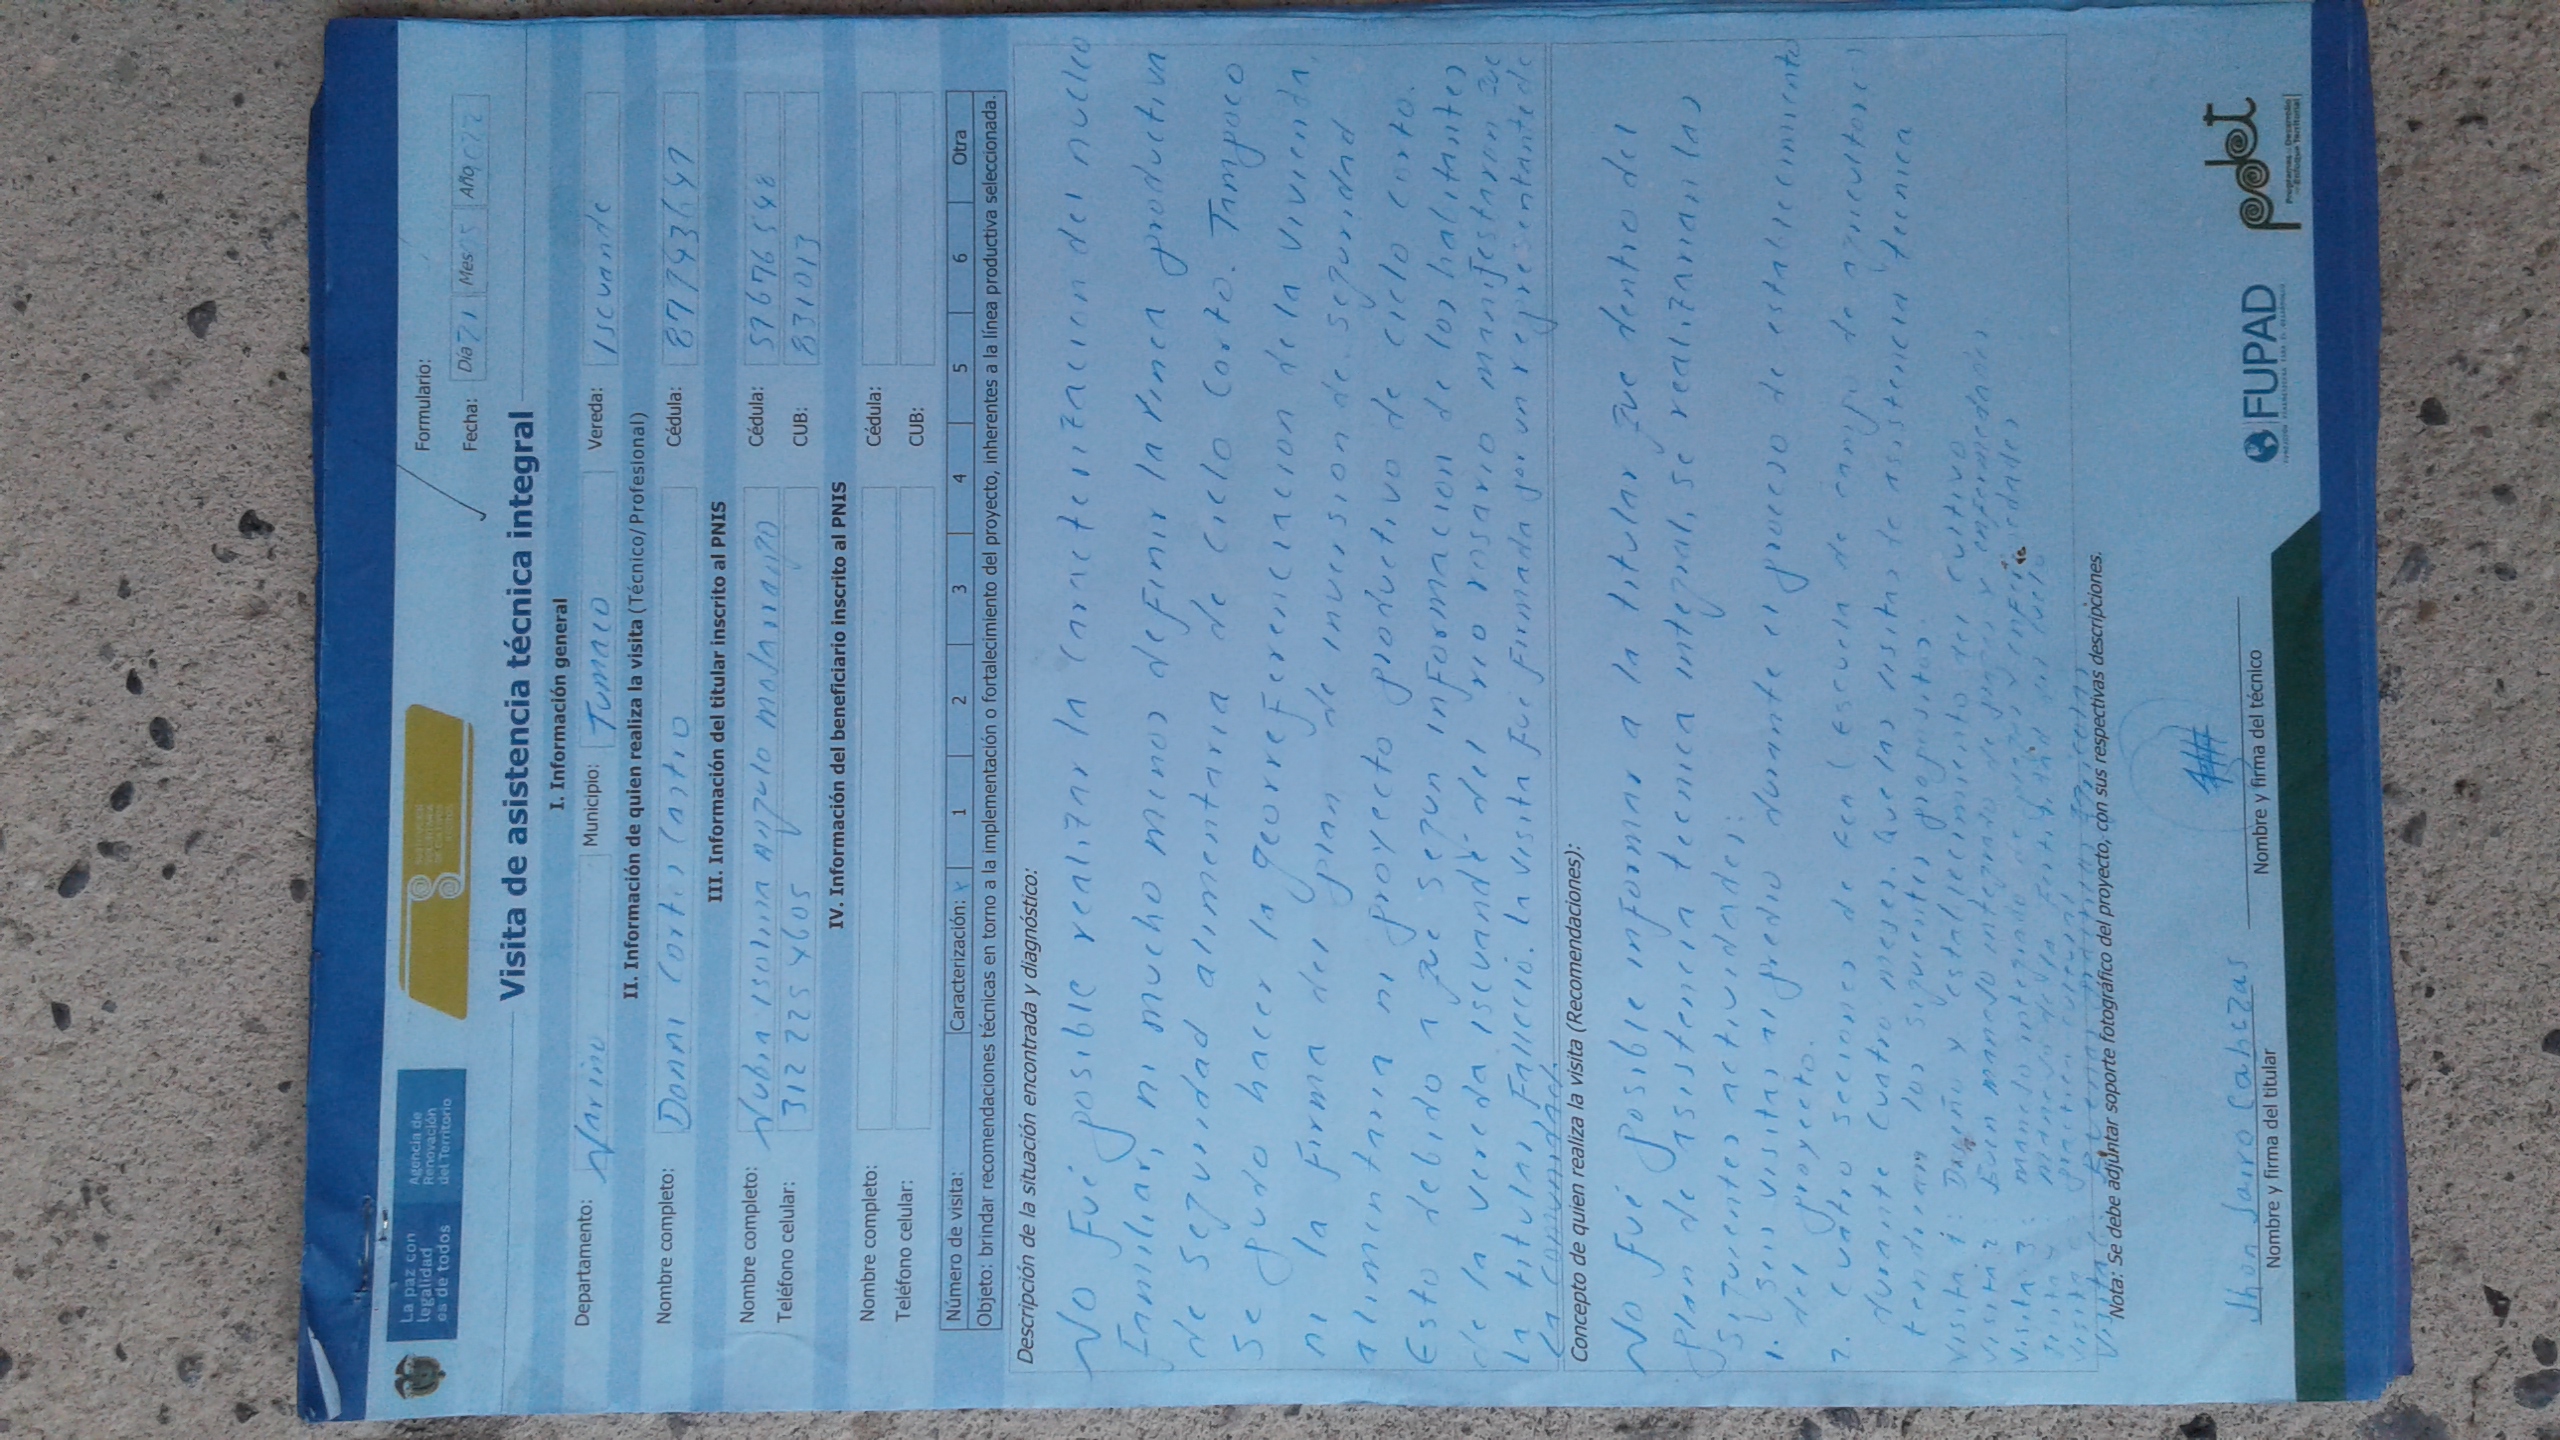 La paz con
legalidad
es de todos
Agencia de
Renovación
del Territorio
Formulario:
Fecha: Día 21 Mes 05 Año 22
Visita de asistencia técnica integral
I. Información general
Departamento: Nariño Municipio: Tumaco Vereda: Iscuande
II. Información de quien realiza la visita (Técnico/Profesional)
Nombre completo: Donni Cortes Castro Cédula:
III. Información del titular inscrito al PNIS
Nombre completo: Nubia Isolina Angulo Cédula:
Teléfono celular: 312 225 4605 CUB: 831013
IV. Información del beneficiario inscrito al PNIS
Nombre completo: Cédula:
Teléfono celular: CUB:
Número de visita: Caracterización: x 1 2 3 4 5 6 Otra
Objeto: brindar recomendaciones técnicas en torno a la implementación o fortalecimiento del proyecto, inherentes a la línea productiva seleccionada.
Descripción de la situación encontrada y diagnóstico:
No fué posible realizar la caracterizacion del nucleo
familiar, ni mucho menos definir la linea productiva
de seguridad alimentaria de ciclo corto. Tampoco
se pudo hacer la georreferenciacion de la vivienda,
ni la firma del plan de inversion de seguridad
alimentaria ni proyecto productivo de ciclo corto.
Esto debido a que segun informacion de los habitantes
de la vereda iscuandé del rio rosario manifestaron que
la titular Fallecio. la visita fue firmada por un representante de
la comunidad.
Concepto de quien realiza la visita (Recomendaciones):
No fué posible informar a la titular que dentro del
plan de asistencia tecnica integral, se realizarian las
siguientes actividades:
1. seis visitas al predio durante el proceso de establecimiento
del proyecto.
2. cuatro seciones de ECA (escuela de campo de agricultores)
durante cuatro meses. Que las visitas de asistencia tecnica
tendrian los siguientes propositos.
Visita 1: Diseño y establecimiento del cultivo
Visita 2: Buen manejo integrado de plagas y enfermedades
Visita 3: manejo integrado de plagas y
manejo de la fertilidad del suelo
Visita
Nota: Se debe adjuntar soporte fotográfico del proyecto, con sus respectivas descripciones.
Jhon Jairo Cabezas
Nombre y firma del titular
Nombre y firma del técnico
FUPAD
pdet